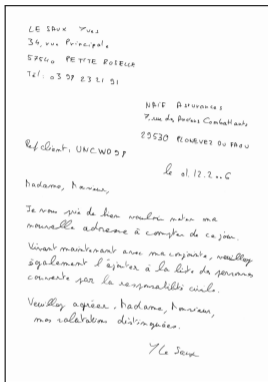 LE SAUX Yves
34, rue Principale
57540 PETITE ROSELLE
Tél : 03 97 23 21 91
NRIF Assurances
7, rue des Anciens Combattants
29530 PLONEVEZ DU FAOU
Ref client : UNCWD59
le 01.12.2006
Madame, Monsieur,
Je vous prie de bien vouloir noter ma
nouvelle adresse à compter de ce jour.
Vivant maintenant avec ma conjointe, veuillez
également l'ajouter à la liste des personnes
couverte par la responsabilité civile.
Veuillez agréer, Madame, Monsieur,
mes salutations distinguées.
Y Le Saux